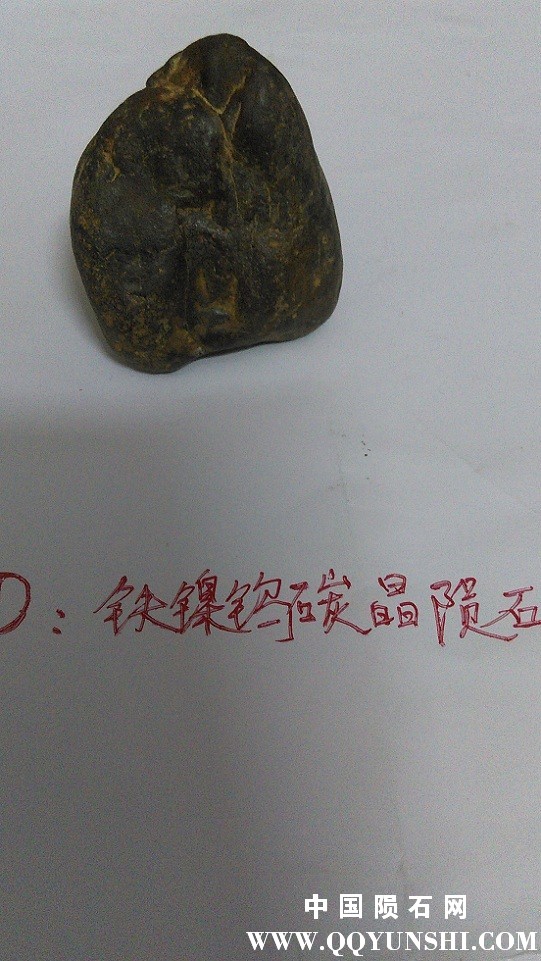 D：铁镍钨碳晶陨石
中国陨石网
WWW.QQYUNSHI.COM